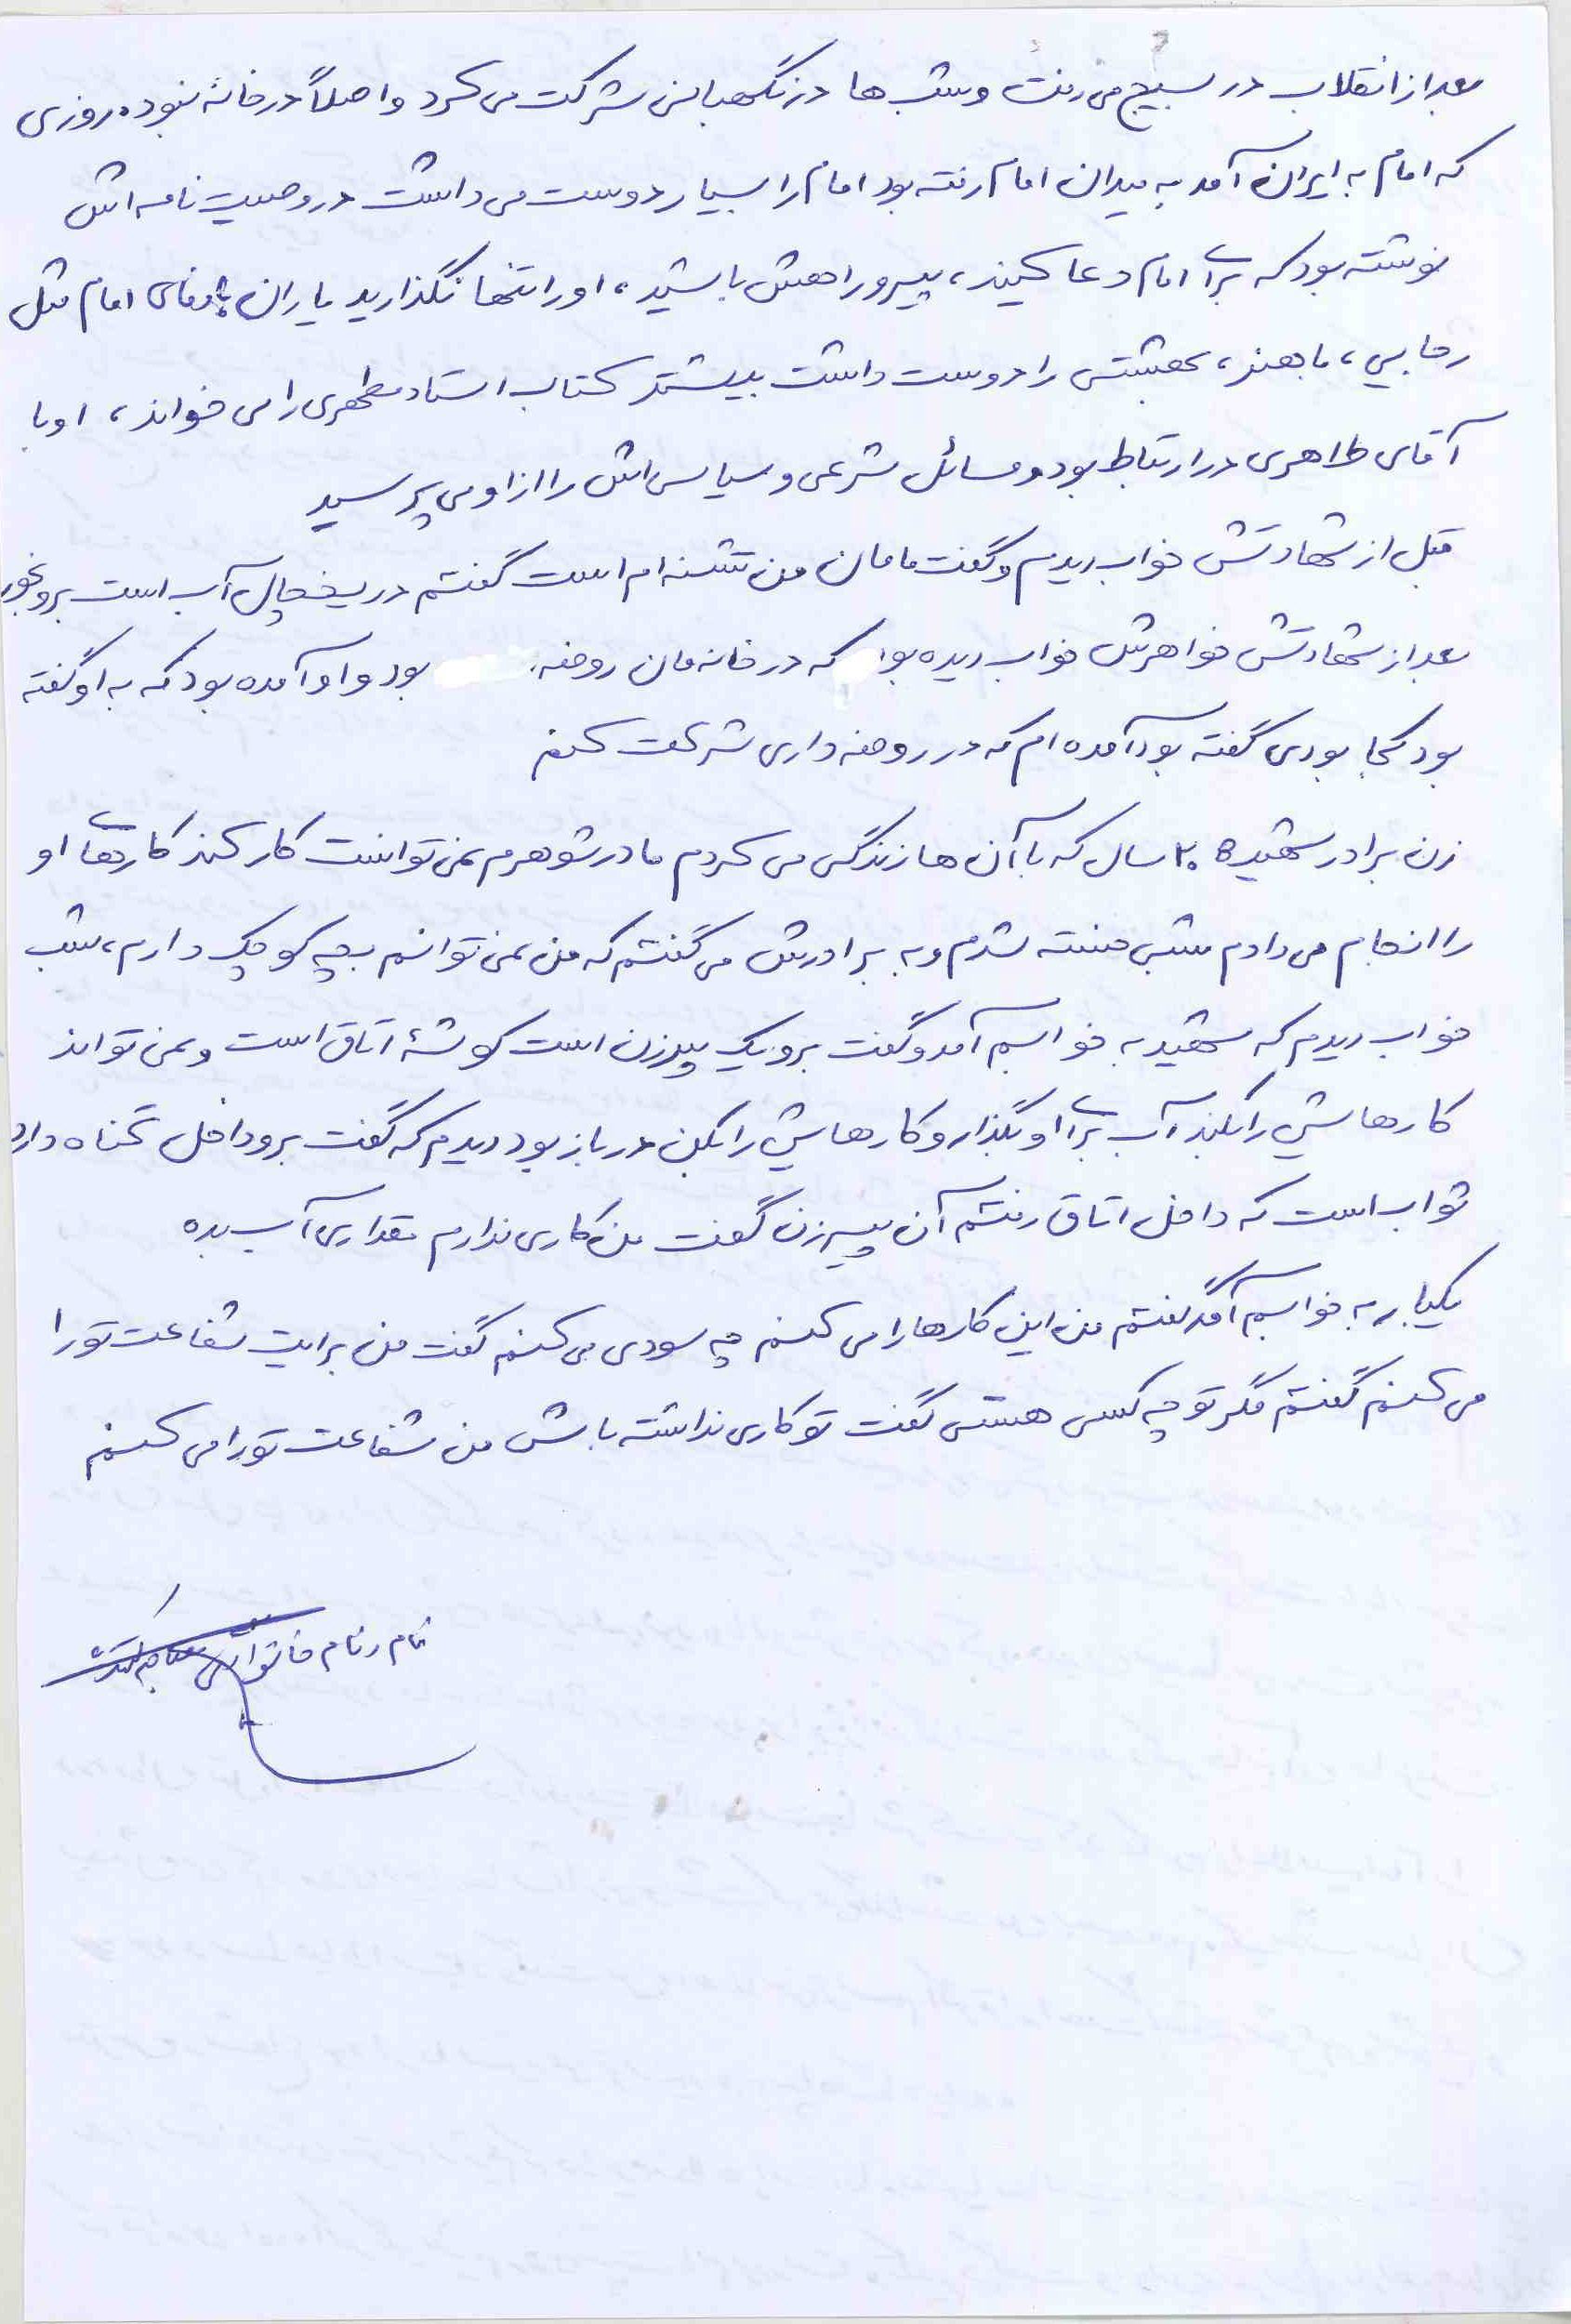 بعد از انقلاب در بسیج می رفت و شب ها در نگهبانی شرکت می کرد و اصلاً در خانه نبود. روزی
که امام به ایران آمد به میدان امام رفته بود امام را بسیار دوست می داشت در وصیت نامه اش
نوشته بود که برای امام دعا کنید، پیرو راهش باشید، او را تنها نگذارید یاران باوفای امام مثل
رجایی، باهنر، بهشتی را دوست داشت بیشتر کتاب استاد مطهری را می خواند، او با
آقای طاهری در ارتباط بود و مسائل شرعی و سیاسی اش را از او می پرسید
قبل از شهادتش خواب دیدم و گفت مامان من تشنه ام است گفتم در یخچال آب است برو بخور
بعد از شهادتش خواهرش خواب دیده بود که در خانه مان روضه بود و او آمده بود که به او گفته
بود کجا بودی گفته بود آمده ام که در روضه داری شرکت کنم
زن برادر شهید ۲۰ سال که با آن ها زندگی می کردم مادر شوهرم نمی توانست کار کند کارهای او
را انجام می دادم شبی خسته شدم و به برادرش می گفتم که من نمی توانم بچه کوچک دارم، شب
خواب دیدم که شهید به خوابم آمد و گفت برو یک پیرزن است گوشهٔ اتاق است و نمی تواند
کارهایش را بکند آب برای او بگذار و کارهایش را بکن در باز بود دیدم که گفت برو داخل گناه دارد
ثواب است که داخل اتاق رفتم آن پیرزن گفت من کاری ندارم مقداری آب بده
یکبار به خوابم آمد گفتم من این کارها را می کنم چه سودی می کنم گفت من برایت شفاعت تو را
می کنم گفتم مگر تو چه کسی هستی گفت تو کاری نداشته باش من شفاعت تو را می کنم
نام و نام خانوادگی